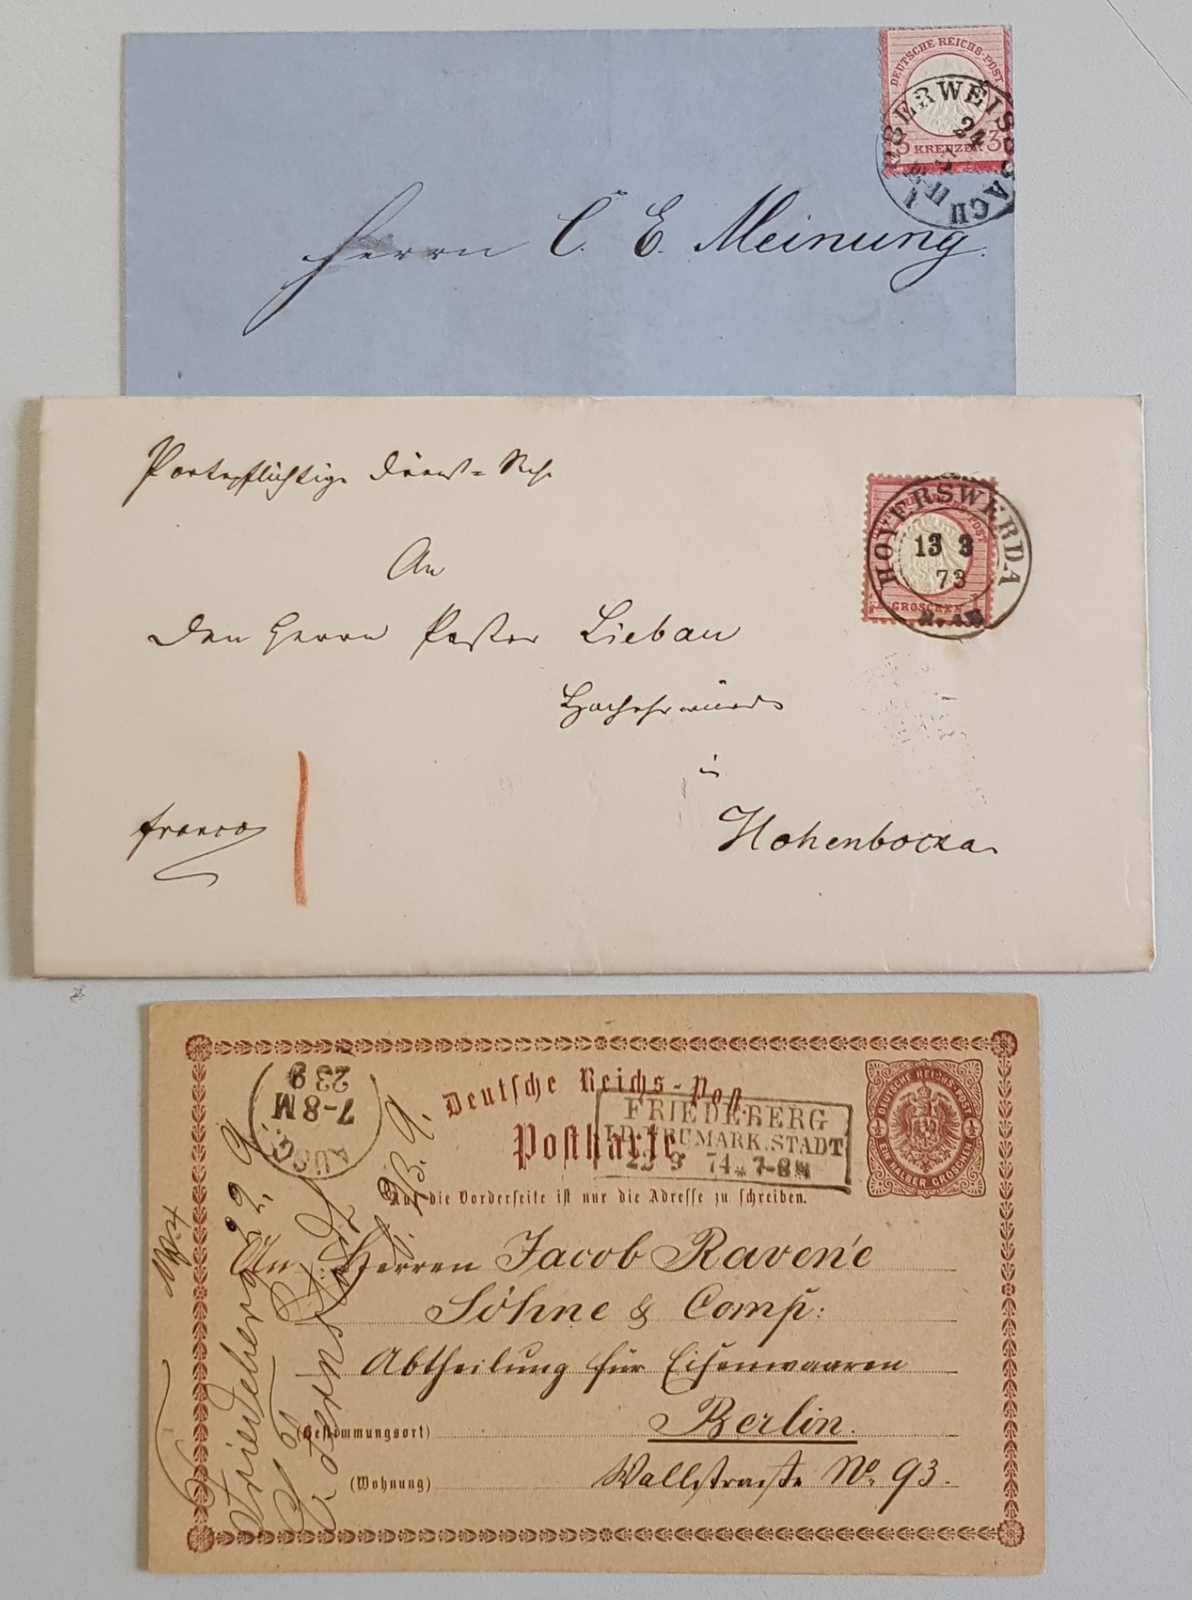 DEUTSCHE REICHS-POST
3 KREUZER 3
OBERWEISSBACH
24
Herrn C. E. Meinung.
Portopflichtige Dienst-Sache
An
den Herrn Pastor Liebau
Hochehrwürden
in
Hohenbocka
franco
HOYERSWERDA
13 3
73
GROSCHEN
Deutsche Reichs-Post
Postkarte
Auf die Vorderseite ist nur die Adresse zu schreiben.
DEUTSCHE REICHS-POST
½ ½
EIN HALBER GROSCHEN
FRIEDEBERG
I.D. NEUMARK. STADT
22 9 74 * 7-8N
AUSG.
7-8 M
23 9
An Herren Jacob Ravené
Söhne & Comp:
Abtheilung für Eisenwaaren
(Bestimmungsort) Berlin.
(Wohnung) Wallstrasse No. 93.
Friedeberg 22. 9
23. 9.